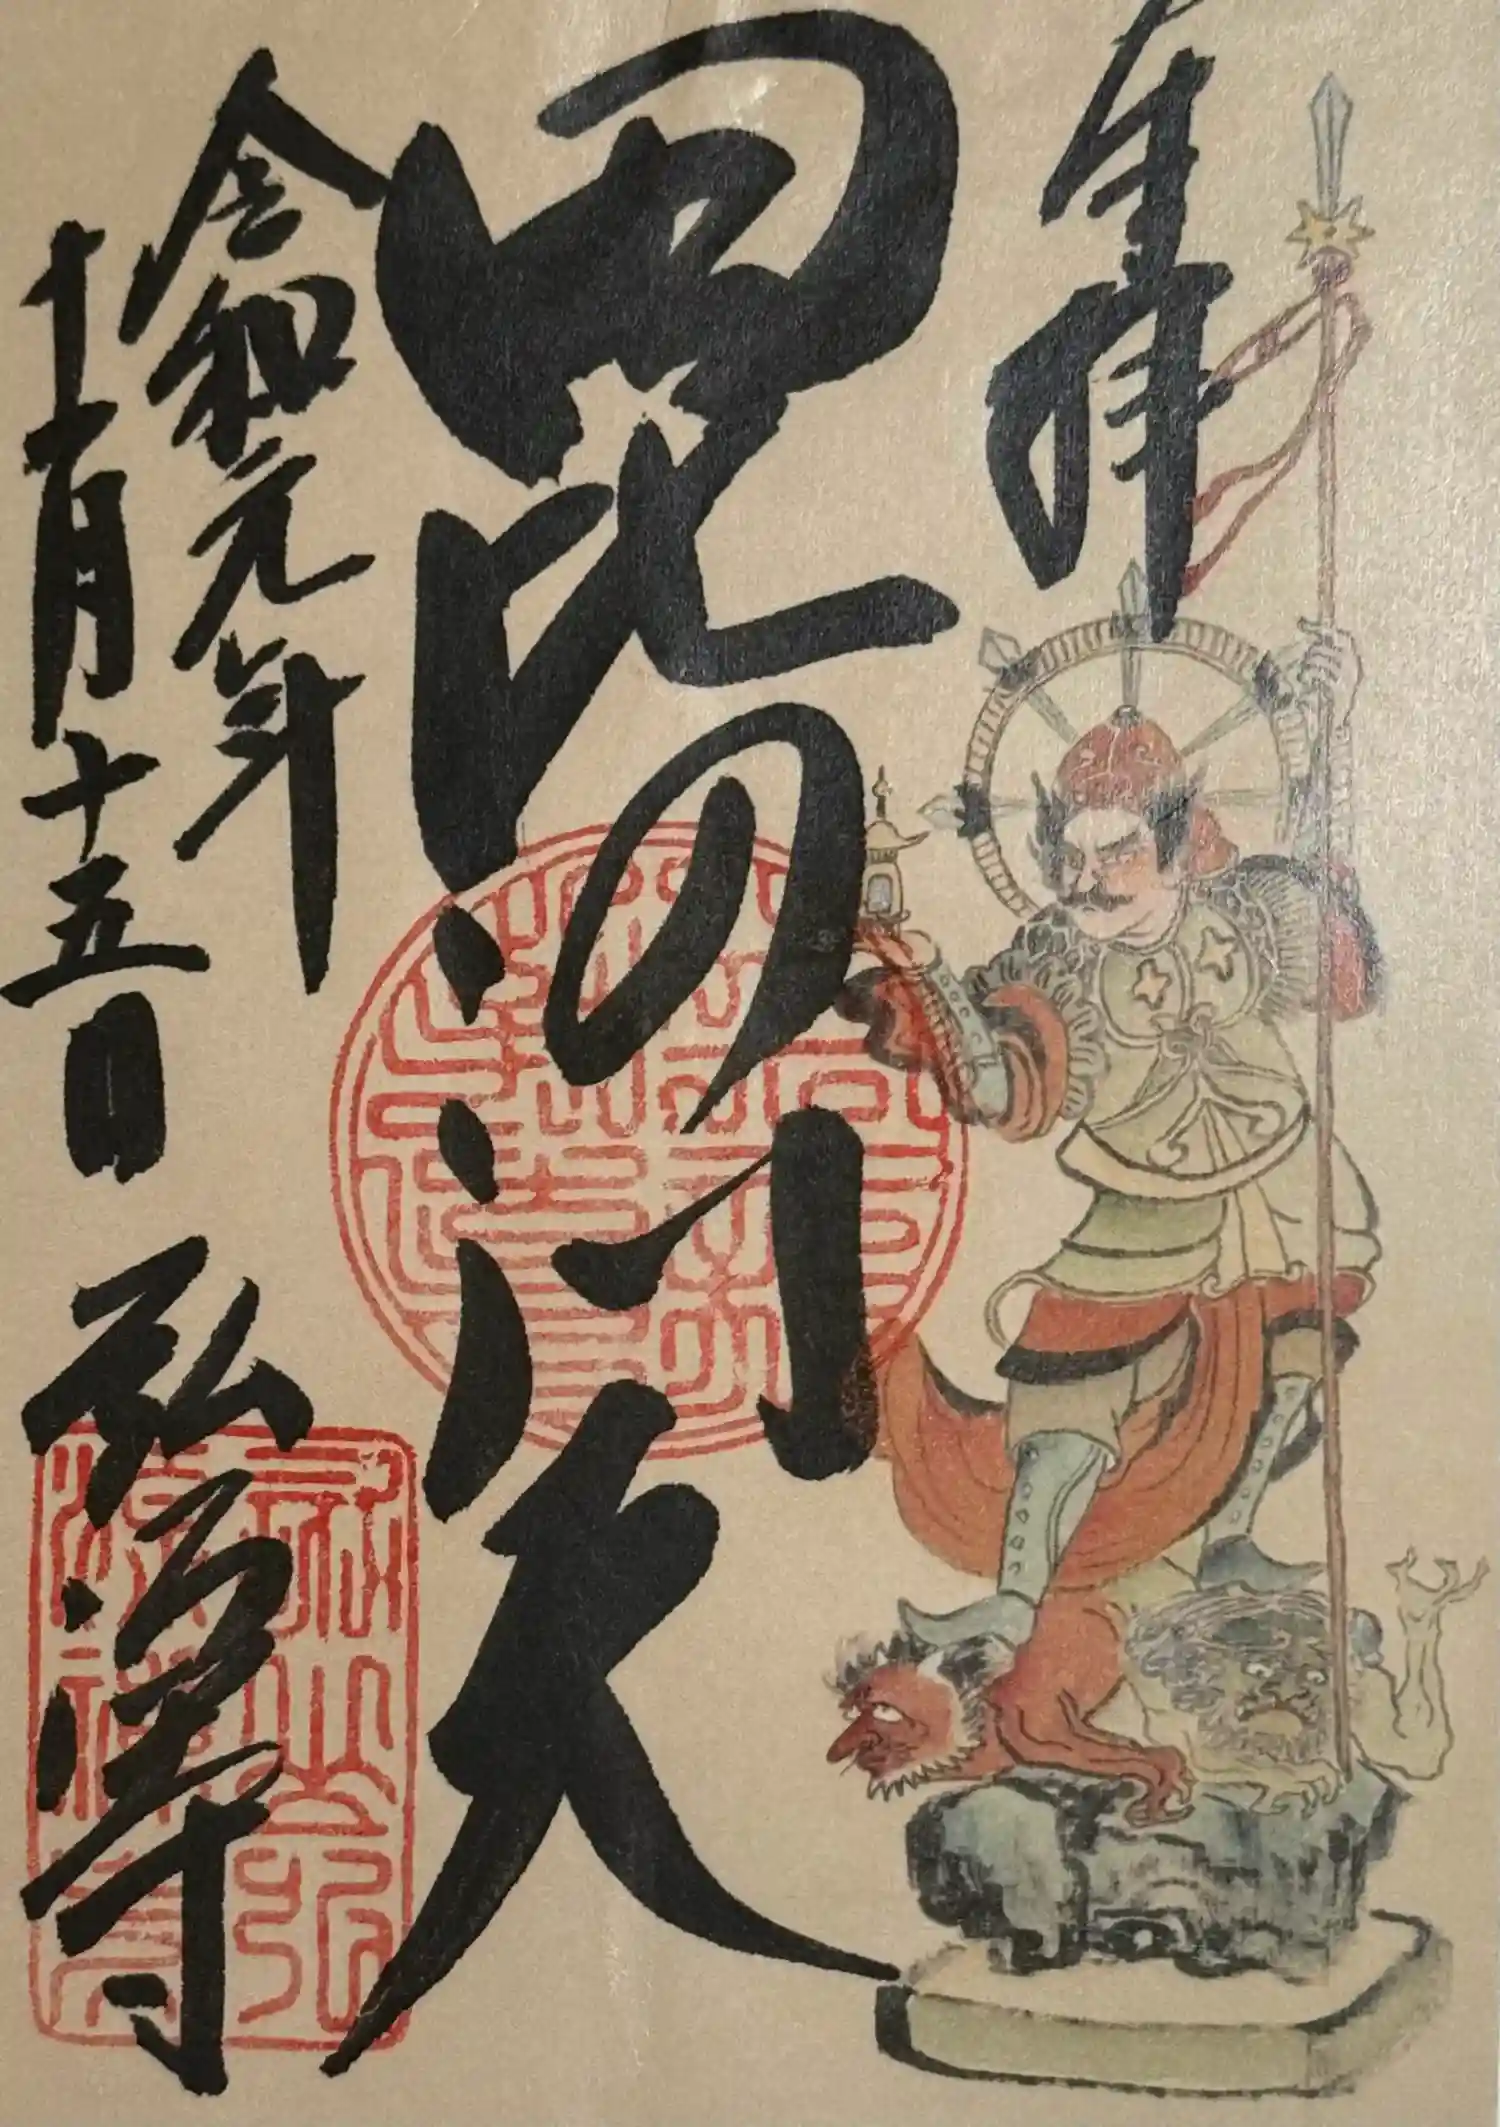 奉拝
毘沙門天
令和元年
十一月十五日 弘源寺